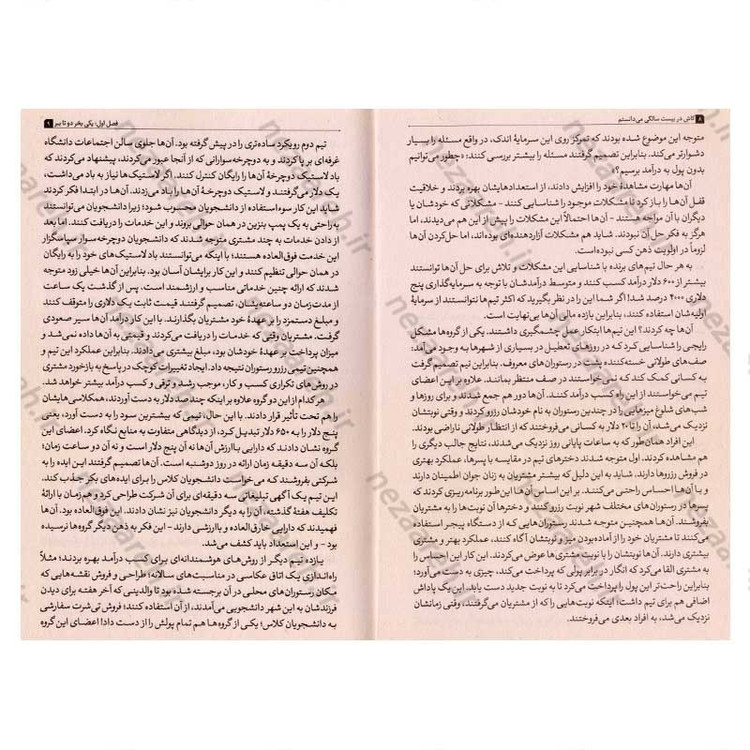 ۸ کاش در بیست سالگی می‌دانستم
متوجه این موضوع شده بودند که تمرکز روی این سرمایهٔ اندک، در واقع مسئله را بسیار
دشوارتر می‌کند. بنابراین تصمیم گرفتند مسئله را بیشتر بررسی کنند: «چطور می‌توانیم
بدون پول به درآمد برسیم؟»
آن‌ها مهارت مشاهدهٔ خود را افزایش دادند، از استعدادهایشان بهره بردند و خلاقیت
قفل آن‌ها را باز کرد تا مشکلات موجود را شناسایی کنند - مشکلاتی که خودشان یا
دیگران با آن مواجه هستند - آن‌ها احتمالاً این مشکلات را پیش از این هم می‌دیدند، اما
هرگز به فکر حل آن نبودند. شاید هم مشکلات آزاردهنده‌ای بوده‌اند، اما حل‌کردن آن‌ها
لزوماً در اولویت ذهن کسی نبوده است.
به هر حال تیم‌های برنده با شناسایی این مشکلات و تلاش برای حل آن‌ها توانستند
بیشتر از ۶۰۰ دلار درآمد کسب کنند و متوسط درآمدشان با توجه به سرمایه‌گذاری پنج
دلاری ۴۰۰۰ درصد شد! اگر شما این را در نظر بگیرید که اکثر تیم‌ها نتوانستند از سرمایهٔ
اولیه‌شان استفاده کنند، بنابراین بازده مالی آن‌ها بی‌نهایت است.
آن‌ها چه کردند؟ این تیم‌ها ابتکار عمل چشمگیری داشتند. یکی از گروه‌ها مشکل
رایجی را شناسایی کرد که در روزهای تعطیل در بسیاری از شهرها به وجود می‌آمد:
صف‌های طولانی خسته‌کننده پشت در رستوران‌های معروف. بنابراین تیم تصمیم گرفت
به کسانی کمک کند که نمی‌خواستند در صف منتظر بمانند. علاوه بر این اعضای
تیم می‌خواستند از این راه کسب درآمد کنند. آن‌ها دور هم جمع شدند و برای روزها و
شب‌های شلوغ میزهایی را در چندین رستوران به نام خودشان رزرو کردند و وقتی نوبتشان
نزدیک می‌شد، آن را تا ۲۰ دلار به کسانی می‌فروختند که از انتظار طولانی ناراضی بودند.
این افراد همان‌طور که به ساعات پایانی روز نزدیک می‌شدند، نتایج جالب دیگری را
هم مشاهده کردند. اول متوجه شدند دخترهای تیم در مقایسه با پسرها، عملکرد بهتری
در فروش رزروها دارند. شاید به این دلیل که بیشتر مشتریان به زنان جوان اطمینان دارند
و با آن‌ها احساس راحتی می‌کنند. بر این اساس آن‌ها این‌طور برنامه‌ریزی کردند که
پسرها در رستوران‌های مختلف شهر نوبت رزرو کنند و دخترها آن نوبت‌ها را به مشتریان
بفروشند. آن‌ها همچنین متوجه شدند رستوران‌هایی که از دستگاه پیجر استفاده
می‌کنند تا مشتریان خود را از آماده‌بودن میز و نوبتشان آگاه کنند، عملکرد بهتر و مشتری
بیشتری دارند. آن‌ها نوبتشان را با نوبت مشتری‌ها عوض می‌کردند. این کار این احساس را
به مشتری القا می‌کرد که انگار در برابر پولی که پرداخت می‌کند، چیزی به دست می‌آورد؛
بنابراین راحت‌تر این پول را پرداخت می‌کرد تا به نوبت جدید دست یابد. این یک پاداش
اضافی هم برای تیم داشت؛ اینکه نوبت‌هایی را که از مشتریان می‌گرفتند، وقتی زمانشان
نزدیک می‌شد، به افراد بعدی می‌فروختند.
فصل اول: یکی بخر دو تا ببر ۹
تیم دوم رویکرد ساده‌تری را در پیش گرفته بود. آن‌ها جلوی سالن اجتماعات دانشگاه
غرفه‌ای برپا کردند و به دوچرخه‌سوارانی که از آنجا عبور می‌کردند، پیشنهاد می‌کردند که
باد لاستیک دوچرخهٔ آن‌ها را رایگان کنترل کنند. اگر لاستیک‌ها نیاز به باد می‌داشت،
یک دلار می‌گرفتند و لاستیک دوچرخهٔ آن‌ها را باد می‌زدند. آن‌ها در ابتدا فکر کردند
شاید این کار سوءاستفاده از دانشجویان محسوب شود؛ زیرا دانشجویان می‌توانستند
به‌راحتی به یک پمپ بنزین در همان حوالی بروند و این خدمات را دریافت کنند. اما بعد
از دادن خدمات به چند مشتری متوجه شدند که دانشجویان دوچرخه‌سوار سپاسگزار
این خدمت فوق‌العاده هستند؛ با اینکه می‌توانستند باد لاستیک‌های خود را به رایگان
در همان حوالی تنظیم کنند و این کار برایشان آسان بود. بنابراین آن‌ها خیلی زود متوجه
شدند که ارائه چنین خدماتی مناسب و ارزشمند است. پس از گذشت یک ساعت
از مدت‌زمان دو ساعته‌یشان، تصمیم گرفتند قیمت ثابت یک دلاری را متوقف کنند
و مبلغ دستمزد را بر عهدهٔ خود مشتریان بگذارند. با این کار درآمد آن‌ها سیر صعودی
گرفت. مشتریان وقتی که خدمات را دریافت می‌کردند و قیمتی به آن‌ها داده نمی‌شد و
میزان پرداخت بر عهدهٔ خودشان بود، مبلغ بیشتری می‌دادند. بنابراین عملکرد این تیم و
همچنین تیمی رزرو رستوران نتیجه داد. ایجاد تغییرات کوچک در پاسخ به بازخورد مشتری
در روش‌های تکراری کسب و کار، موجب رشد و ترقی و کسب درآمد بیشتر خواهد شد.
هر کدام از این دو گروه علاوه بر اینکه چند صد دلار به دست آوردند، همکلاسی‌هایشان
را هم تحت تأثیر قرار دادند. با این حال، تیمی که بیشترین سود را به دست آورد، یعنی
پنج دلار را به ۶۵۰ دلار تبدیل کرد، از دیدگاهی متفاوت به منابع نگاه کرد. اعضای این
گروه نشان دادند که دارایی باارزش آن‌ها نه آن پنج دلار است و نه آن دو ساعت زمان؛
بلکه آن سه دقیقه زمان ارائه در روز دوشنبه است. آن‌ها تصمیم گرفتند این ایده را به
شرکتی بفروشند که می‌خواست دانشجویان کلاس را برای ایده‌های بکر جذب کند.
این تیم یک آگهی تبلیغاتی سه دقیقه‌ای برای آن شرکت طراحی کرد و هم‌زمان با ارائهٔ
تکلیف هفتهٔ گذشته، آن را به دیگر دانشجویان نیز نشان دادند. این فوق‌العاده بود. آن‌ها
فهمیدند که دارایی خارق‌العاده و باارزشی دارند - این فکر به ذهن دیگر گروه‌ها نرسیده
بود - و این استعداد باید کشف می‌شد.
یازده تیم دیگر از روش‌های هوشمندانه‌ای برای کسب درآمد بهره بردند؛ مثلاً
راه‌اندازی یک اتاق عکاسی در مناسبت‌های سالانه؛ طراحی و فروش نقشه‌هایی که
مکان رستوران‌های محلی در آن برجسته شده بود تا والدینی که آخر هفته برای دیدن
فرزندشان به این شهر دانشجویی می‌آمدند، از آن استفاده کنند؛ فروش تی‌شرت سفارشی
به دانشجویان کلاس؛ یکی از گروه‌ها هم تمام پولش را از دست داد! اعضای این گروه
nezareh.ir